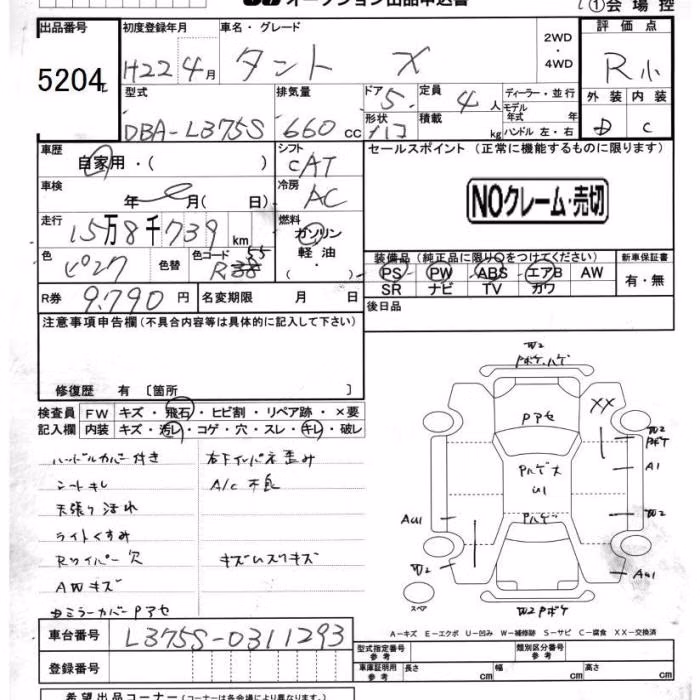 オークション出品申込書
①会場控
出品番号 初度登録年月 車名・グレード 2WD ・ 4WD 評価点
5204 H22年4月 タント X R小
型式 排気量 ドア 5. 定員 4人 ディーラー・並行 外装 内装
DBA-L375S 660cc 形状 ハコ 積載 kg モデル年式 年 ハンドル 左・右 D C
車歴 自家用・( ) シフト CAT セールスポイント (正常に機能するものに限ります)
車検 年 月(日) 冷房 AC NOクレーム・売切
走行 15万8千739km 燃料 ガソリン・軽油・( )
色 ピンク 色替 色コード R55 装備品 (純正品に限り○をつけてください) 新車保証書
PS PW ABS エアB AW 有・無
SR ナビ TV カワ
R券 9.790円 名変期限 月 日 後日品
注意事項申告欄 (不具合内容等は具体的に記入して下さい)
修復歴 有 〔箇所 〕
検査員 FW キズ・飛石・ヒビ割・リペア跡・×要
記入欄 内装 キズ・汚レ・コゲ・穴・スレ・キレ・破レ
ハンドルカバー付き 右下インパネ歪み
シートキレ A/C不良
天張り汚れ
ライトくすみ
Rワイパー欠 キズムスリキズ
AWキズ
中ミラーカバーPアセ
W2
Pボケハゲ
Pアセ XX
W2
Pボケ
Pハゲ大 A1
U1
AU1 Pハゲ W2
W2 AU1
スペア W2Pボケ
A-キズ E-エクボ U-凹み W-補修跡 S-サビ C-腐食 XX-交換済
車台番号 L375S-0311293
型式指定番号 参考 類別区分番号 参考
登録番号 車庫証明用 参考 長さ cm 幅 cm 高さ cm
希望出品コーナー (コーナーは各会場により異なります。)